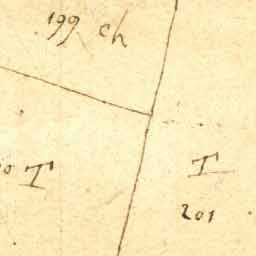 199 ch
0 T
T
201